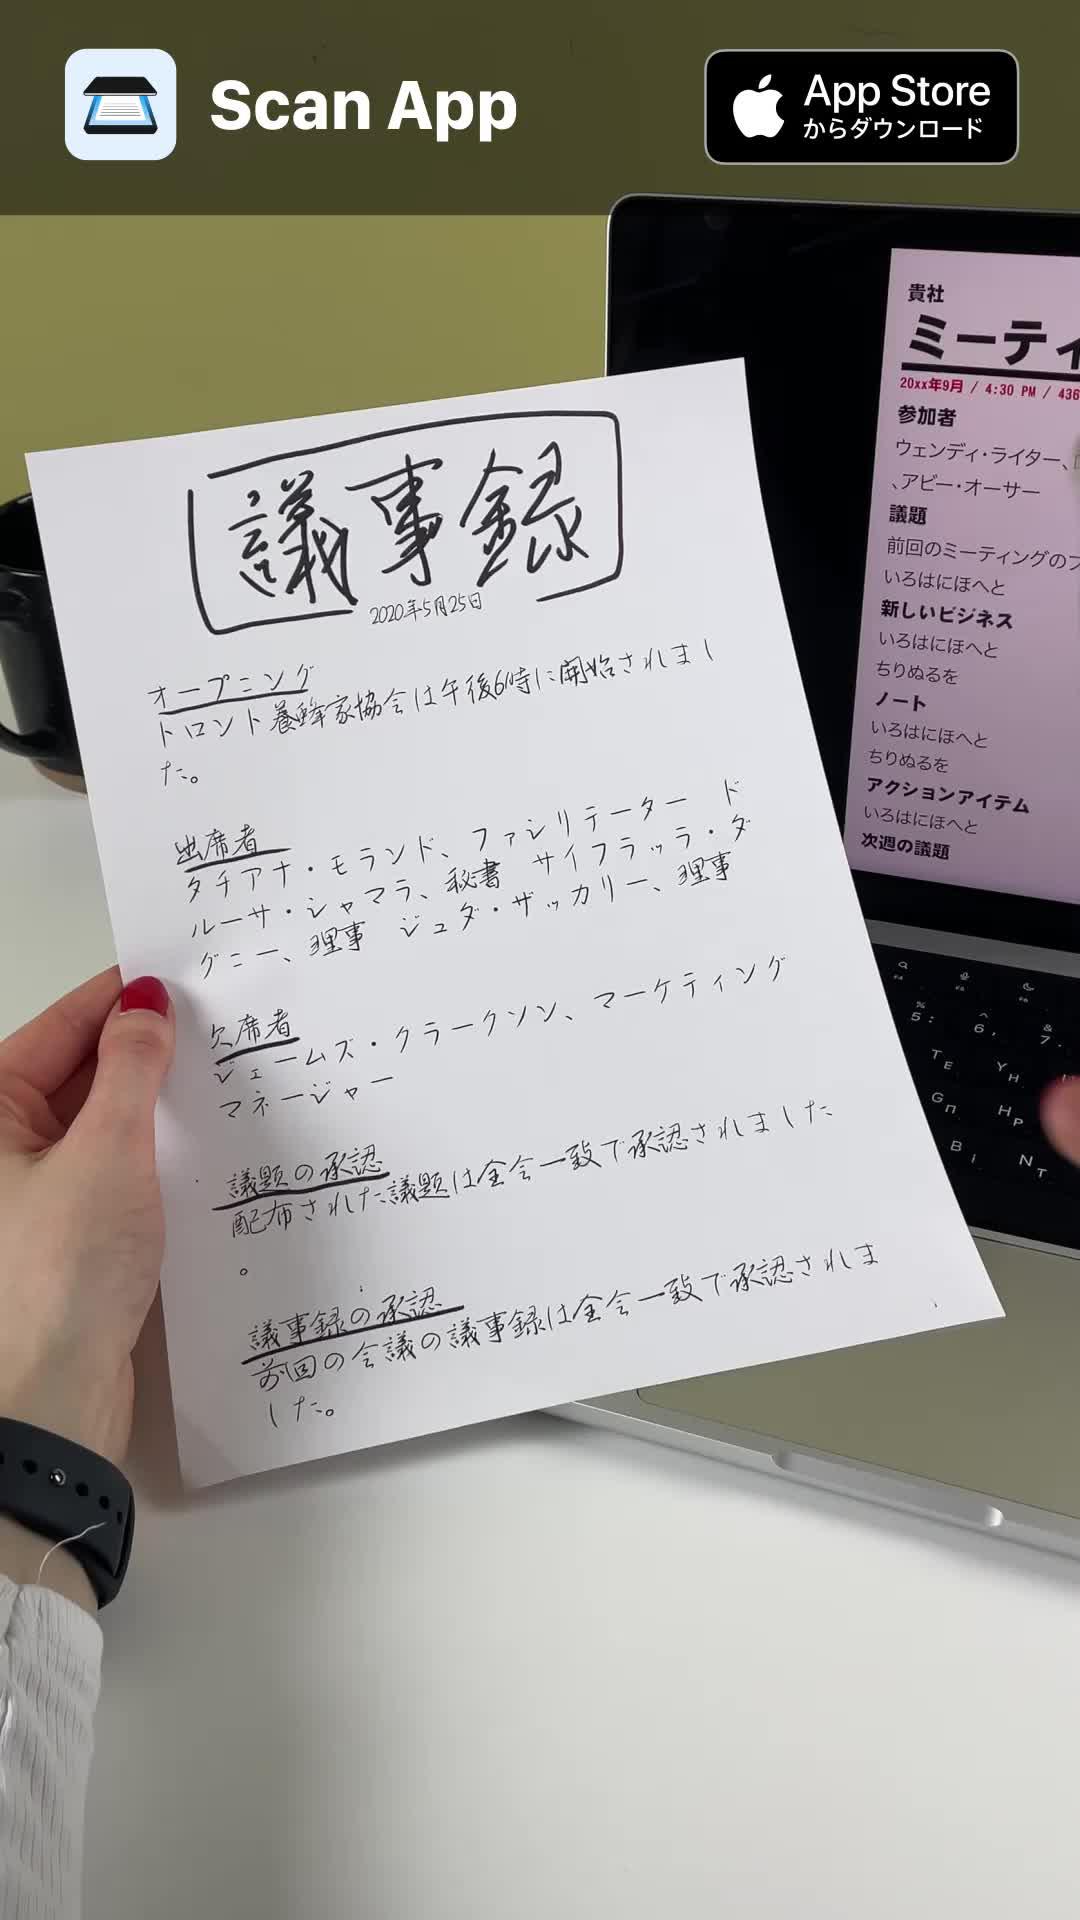 Scan App
App Store
からダウンロード
議事録
2020年5月25日
オープニング
トロント養蜂家協会は午後6時に開始されまし
た。
出席者
タチアナ・モランド、ファシリテーター ド
ルーサ・シャマラ、秘書 サイフラッラ・ダ
グニー、理事 ジュダ・ザッカリー、理事
欠席者
ジェームズ・クラークソン、マーケティング
マネージャー
議題の承認
配布された議題は全会一致で承認されました
。
議事録の承認
前回の会議の議事録は全会一致で承認されま
した。
貴社
ミーティ
20xx年9月 / 4:30 PM / 436
参加者
ウェンディ・ライター、
、アビー・オーサー
議題
前回のミーティングのフ
いろはにほへと
新しいビジネス
いろはにほへと
ちりぬるを
ノート
いろはにほへと
ちりぬるを
アクションアイテム
いろはにほへと
次週の議題